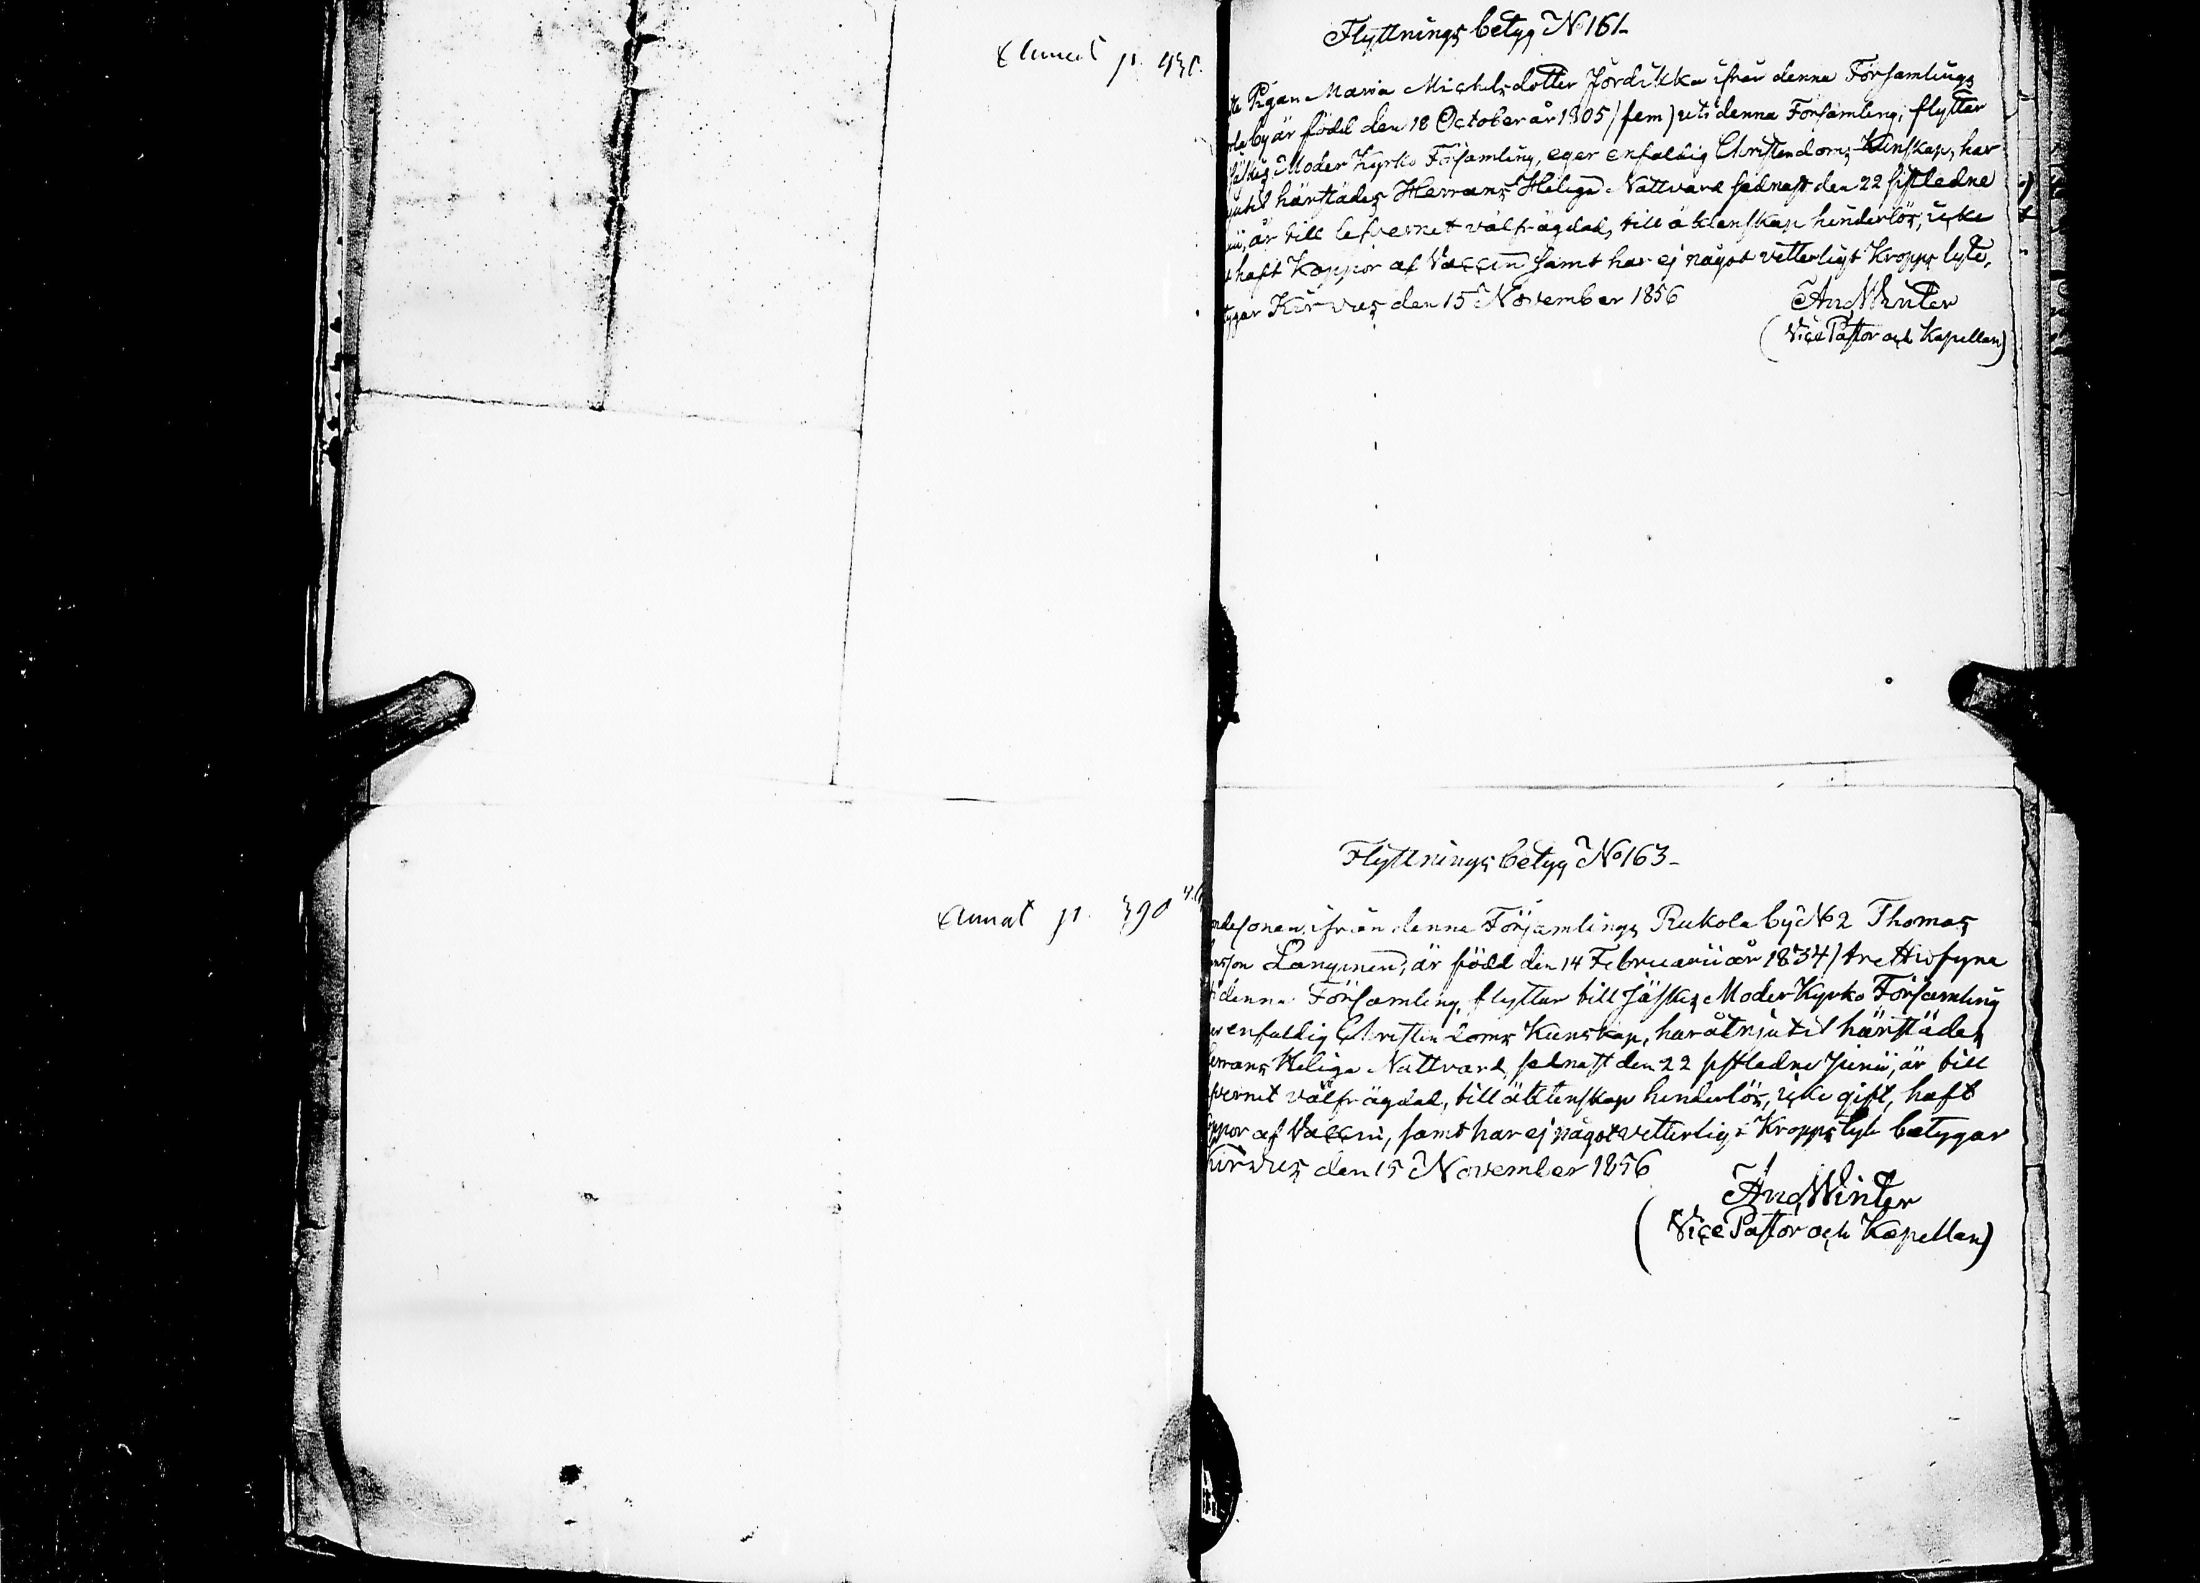 p. 431.
Flyttnings betyg No 161-
Pigan Maria Michelsdotter Jordikka ifrån denna Församlings
by är född den 18 October år 1805 (fem) uti denna Församling, flyttar
Jäskis Moder Kyrko Församling, eger enfaldig Christendoms Kunskap, har
härstädes Herrans Heliga Nattvard sednast den 22 sistledne
är till lefvernet välfrägdad, till äktenskap hinderlös, icke
haft Koppor af Vaccin samt har ej något vetterligt Kropps lyte,
Kirvus den 15 November 1856
And Winter
(Vice Pastor och Kapellan)
Annat p. 390
Flyttnings betyg No 163-
ifrån denna Församlings Rukola by No 2 Thomas
Langinen, är född den 14 Februarii år 1834 (trettiofyra
denna Församling, flyttar till Jäskis Moder Kyrko Församling
enfaldig Christendoms Kunskap, har åtnjutit härstädes
Herrans Heliga Nattvard sednast den 22 sistledne Junii, är till
lefvernet välfrägdad, till äktenskap hinderlös, icke gift, haft
Koppor af Vaccin, samt har ej något vetterligt Kropps lyte betygar
Kirvus den 15 November 1856
And Winter
(Vice Pastor och Kapellan)